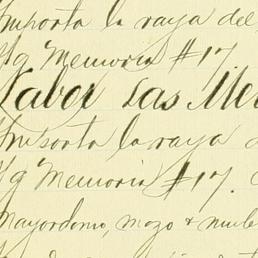 Importa la raya del
Memoria #17.
Labor Las Mer
Importa la raya
Memoria #17.
Mayordomo, mozo +